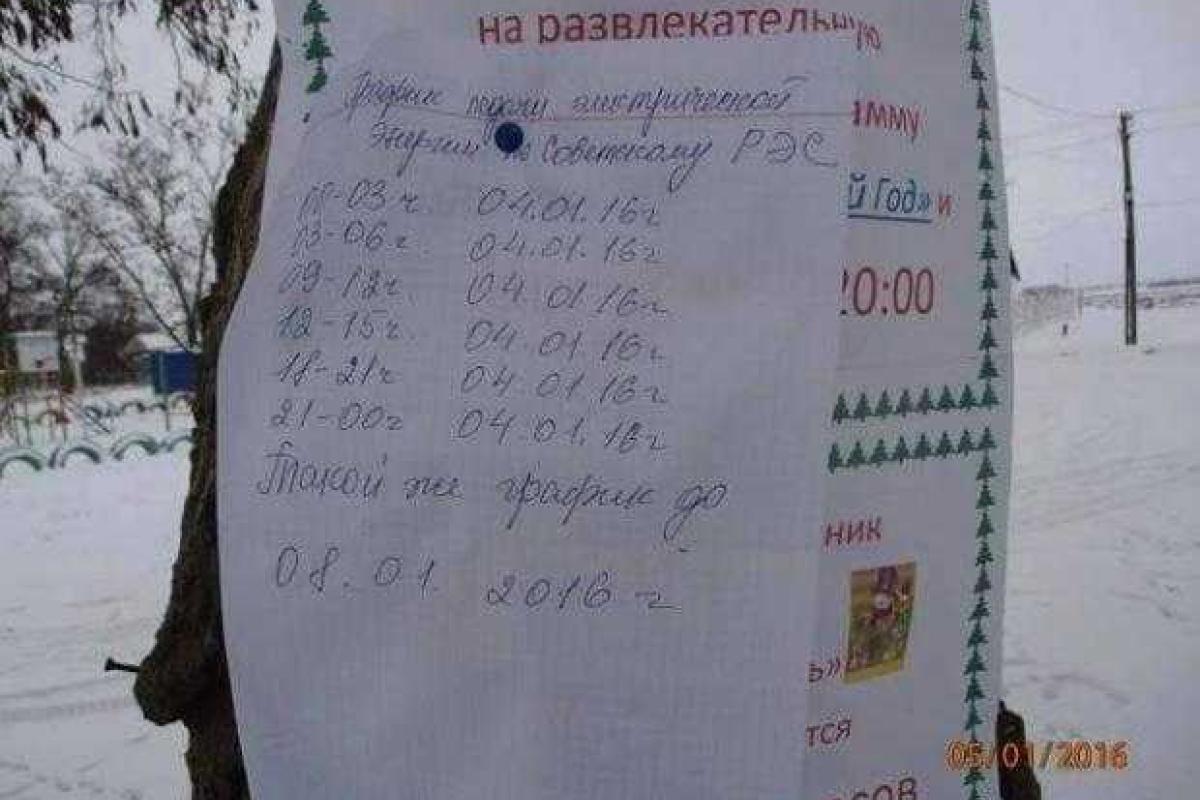 на развлекательную
График подачи электрической
Энергии по Советскому РЭС
амму
-03 ч. 04.01.16 г
-06 г. 04.01.16 г
й Год» и
09-12 г. 04.01.16 г
20:00
12-15 г. 04.01.16 г
18-21 ч 04.01.16 г
21-00 г 04.01.16 г
Такой же график до
ник
08.01. 2016 г
ь»
тся
сов
05/01/2016